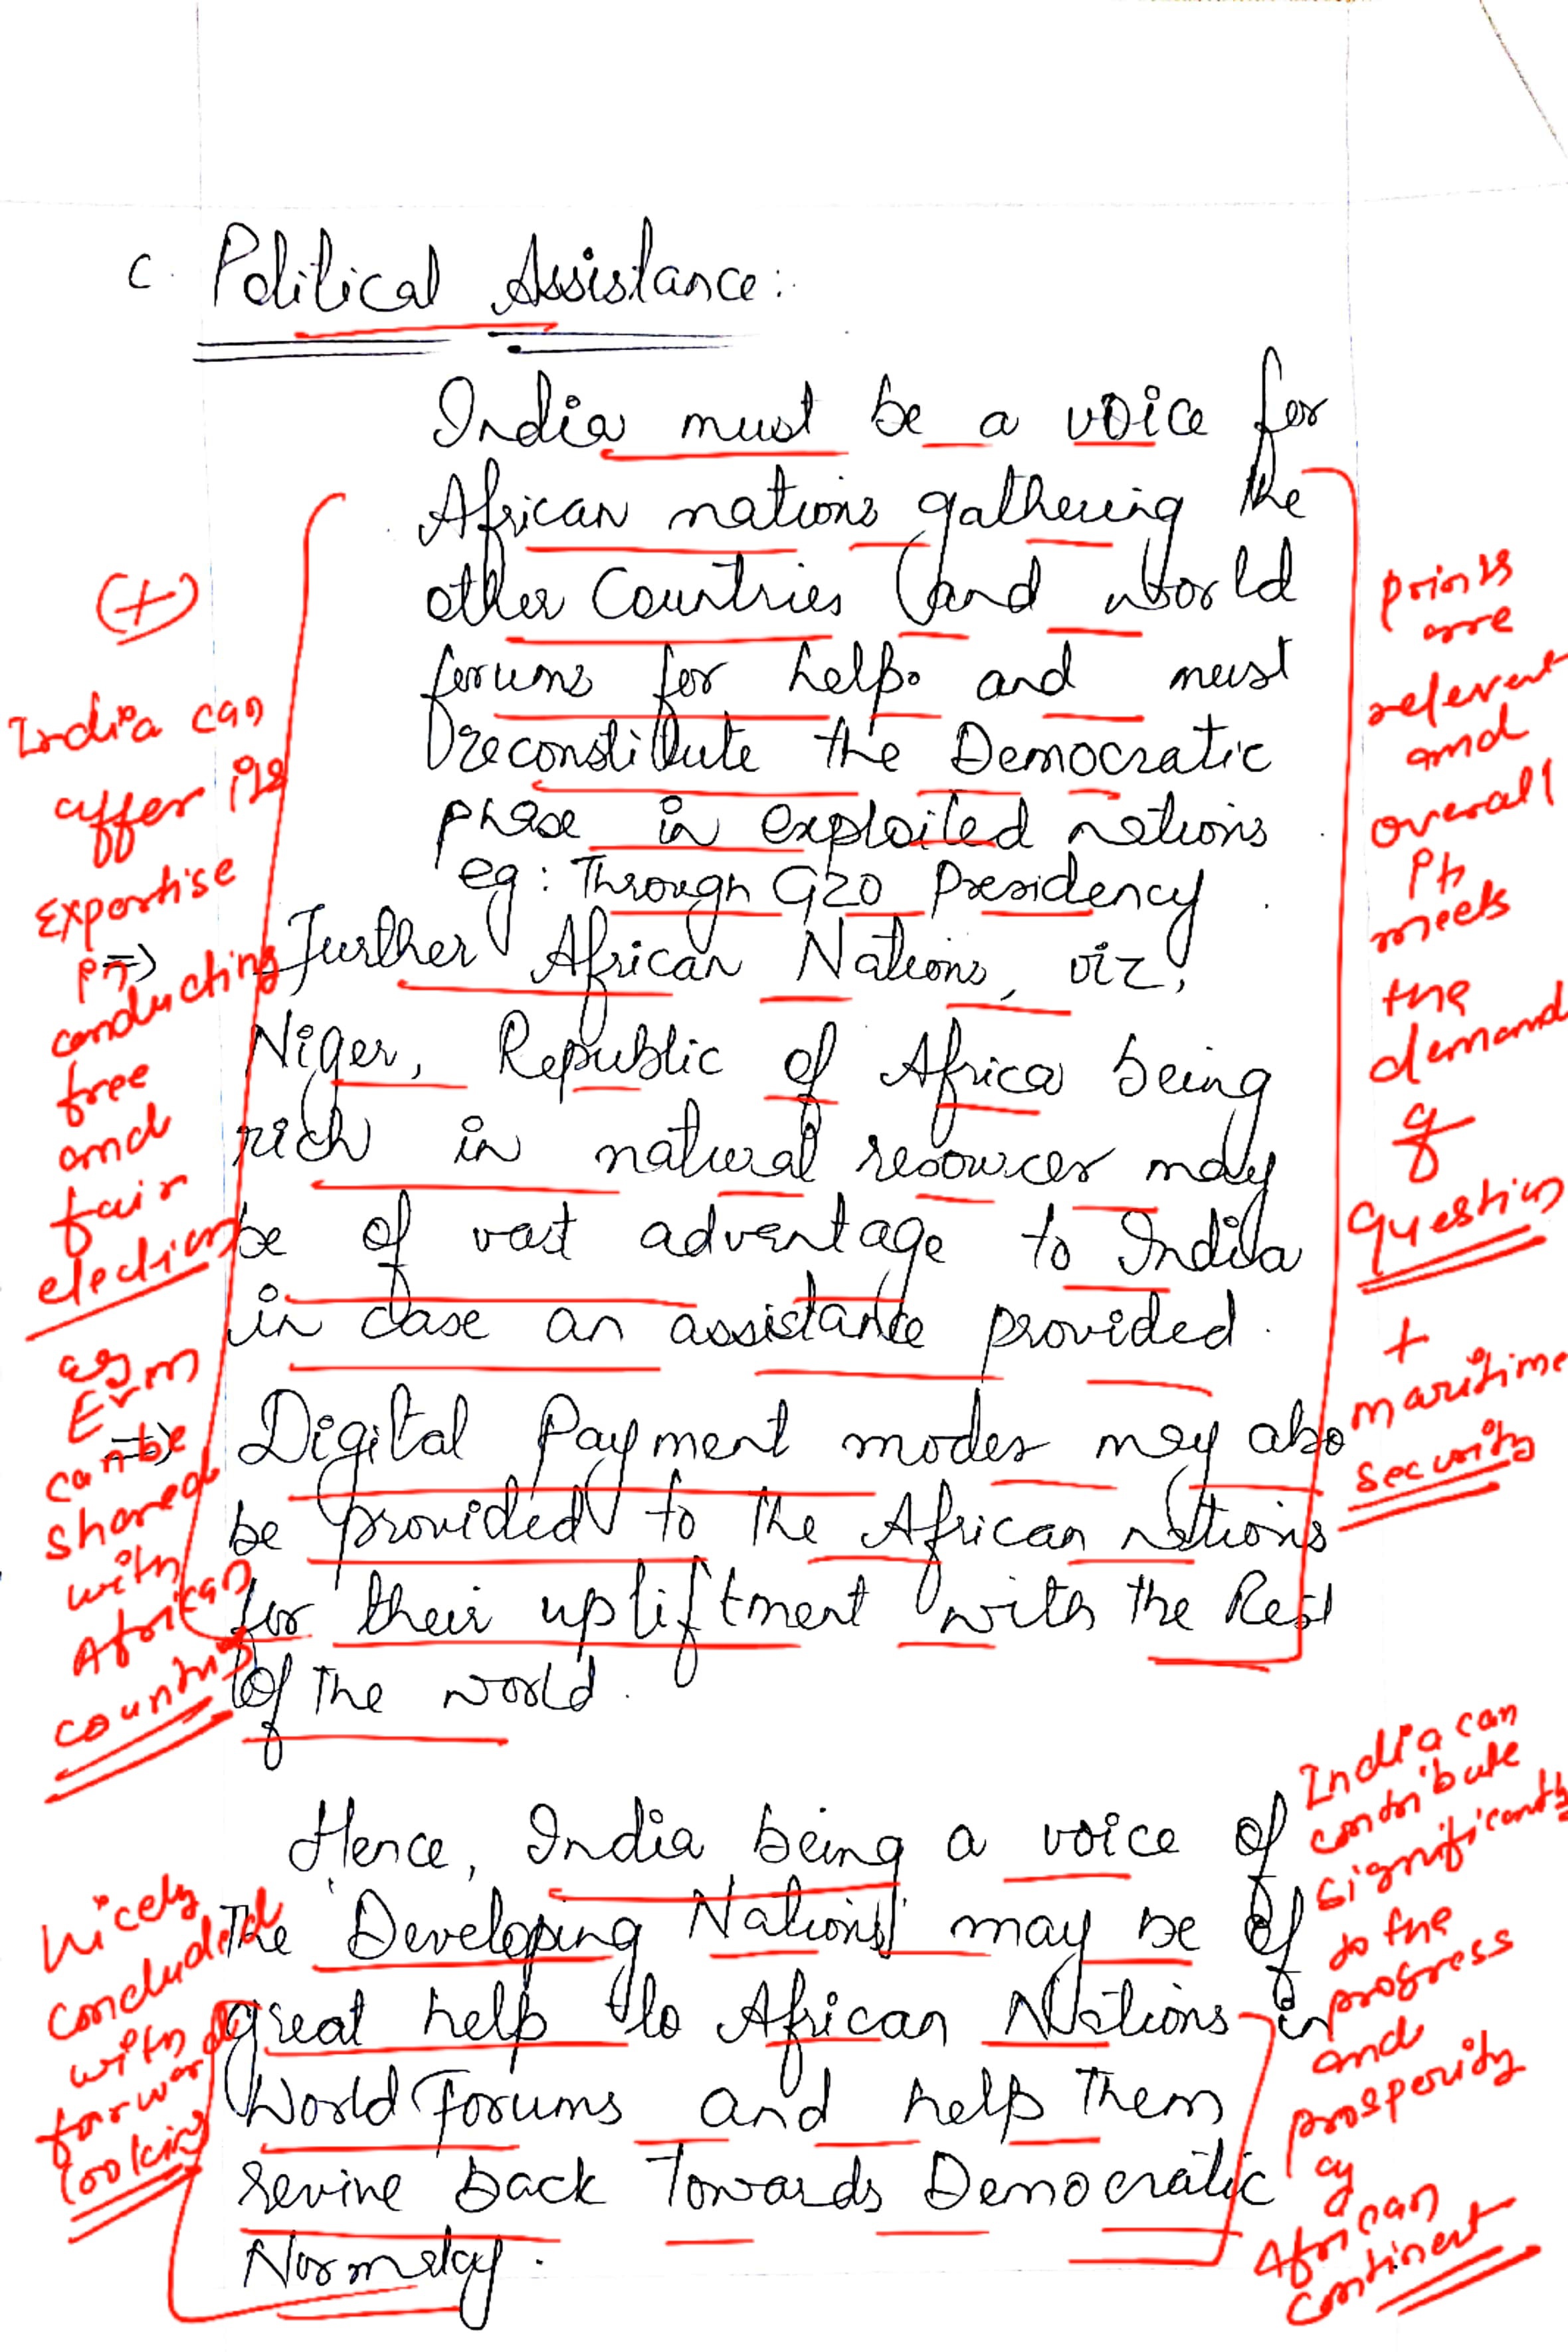 c. Political Assistance:
India must be a voice for
African nations gathering the
other Countries (and world
forums for help. and must
reconstitute the Democratic
phase in exploited nations
eg: Through G20 Presidency
=> Further African Nations, viz,
Niger, Republic of Africa being
rich in natural resources may
be of vast advantage to India
in case an assistance provided.
=> Digital Payment modes may also
be provided to the African nations
for their upliftment with the Rest
of the world.
Hence, India being a voice of
The Developing Nations may be of
great help to African Nations in
World Forums and help Them
revive back Towards Democratic
(+)
India can
offer its
expertise
in
conducting
free
and
fair
election
eg
EVM
can be
shared
with
African
countries
Nicely
concluded
with
forward
looking
points
are
relevant
and
overall
meets
the
demand
of
question
+
maritime
security
India can
contribute
significantly
to the
progress
and
prosperity
of
African
continent